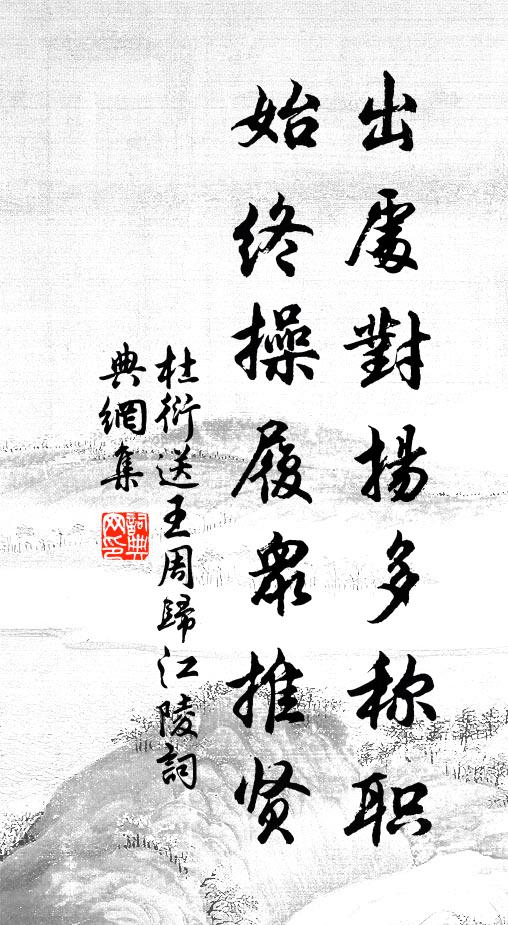 出處對揚多称职
始终操履眾推贤
杜衍送王周歸江陵詞
典網集
詞典
网印